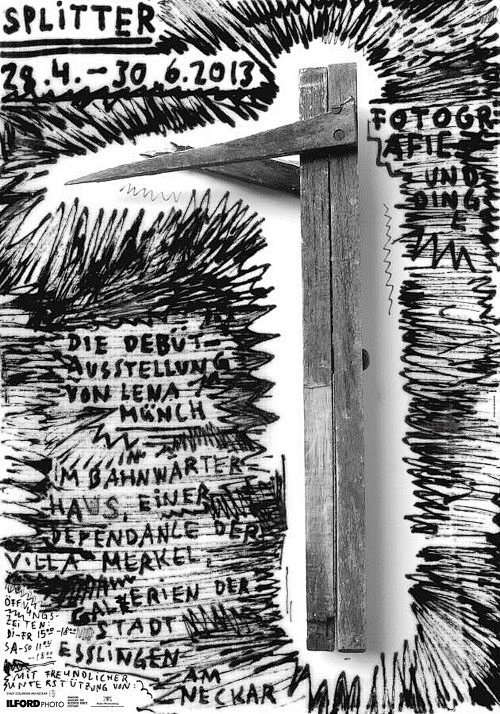 SPLITTER
28.4.–30.6.2013
FOTOGRA
AFIE
UND
DING
E
IM
DIE DEBÜT–
AUSSTELLUNG
VON LENA
MÜNCH
IN
IM BAHNWÄRTER
HAUS, EINER
DEPENDANCE DER
VILLA MERKEL,
GALERIEN DER
STADT
ESSLINGEN
AM
NECKAR
ÖFFN
UNGS-
ZEITEN:
DI-FR 15°°-18°°
SA-SO 11°°
-18°°
MIT FREUNDLICHER
UNTERSTÜTZUNG VON:
ILFORD PHOTO